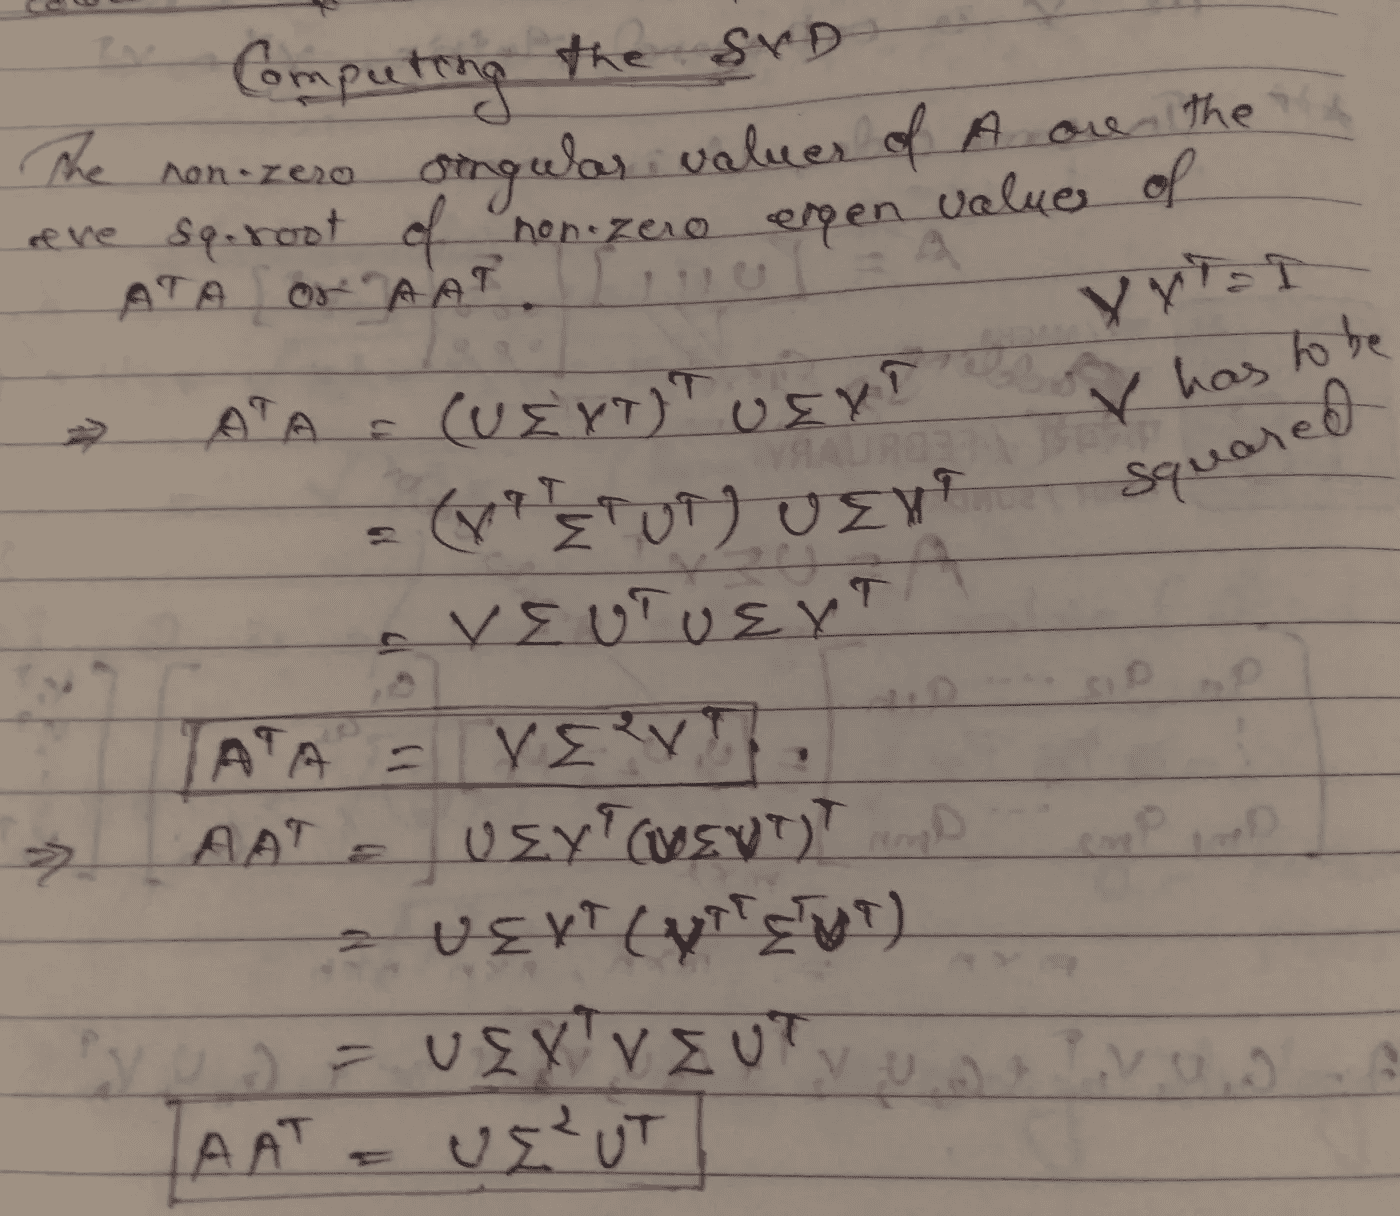 Computing the SVD
The non-zero singular values of A are the
eve sq.root of non-zero eigen values of
AᵀA or AAᵀ.
VVᵀ = I
V has to be
squared
⇒ AᵀA = (UΣVᵀ)ᵀ UΣVᵀ
= (Vᵀᵀ Σᵀ Uᵀ) UΣVᵀ
= VΣUᵀUΣVᵀ
AᵀA = VΣ²Vᵀ.
⇒ AAᵀ = UΣVᵀ(UΣVᵀ)ᵀ
= UΣVᵀ (Vᵀᵀ Σᵀ Uᵀ)
= UΣVᵀVΣUᵀ
AAᵀ = UΣ²Uᵀ